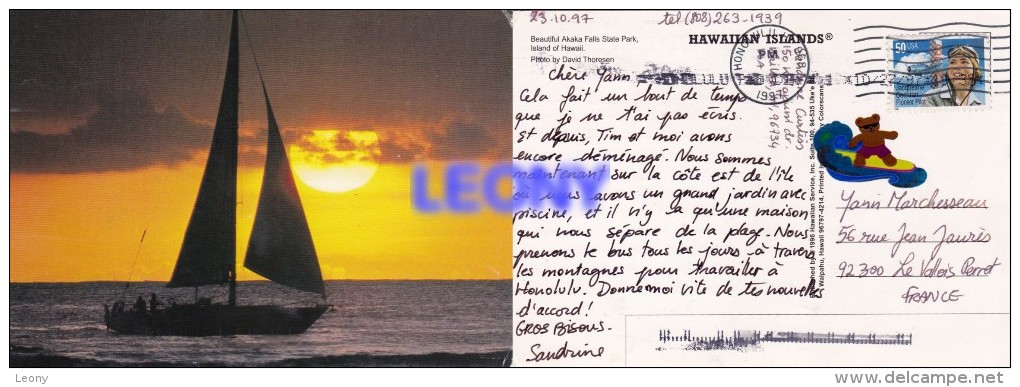 23.10.97
tel (808) 263-1939
Beautiful Akaka Falls State Park,
Island of Hawaii.
Photo by David Thoresen
HAWAIIAN ISLANDS®
HONOLULU
PM
1997
50 USA
Jacqueline
Cochran
Pioneer Pilot
Chère Yann
Cela fait un bout de temps
que je ne t'ai pas écris.
Et depuis, Tim et moi avons
encore déménagé. Nous sommes
maintenant sur la côte est de l'île
où nous avons un grand jardin avec
piscine, et il n'y a qu'une maison
qui nous sépare de la plage. Nous
prenons le bus tous les jours à travers
les montagnes pour travailler à
Honolulu. Donne moi vite de tes nouvelles
d'accord!
GROS BISOUS-
Sandrine
96734
Yann Marchesseau
56 rue Jean Jaurès
92300 Le Vallois Perret
FRANCE
LEONY
Leony
www.delcampe.net